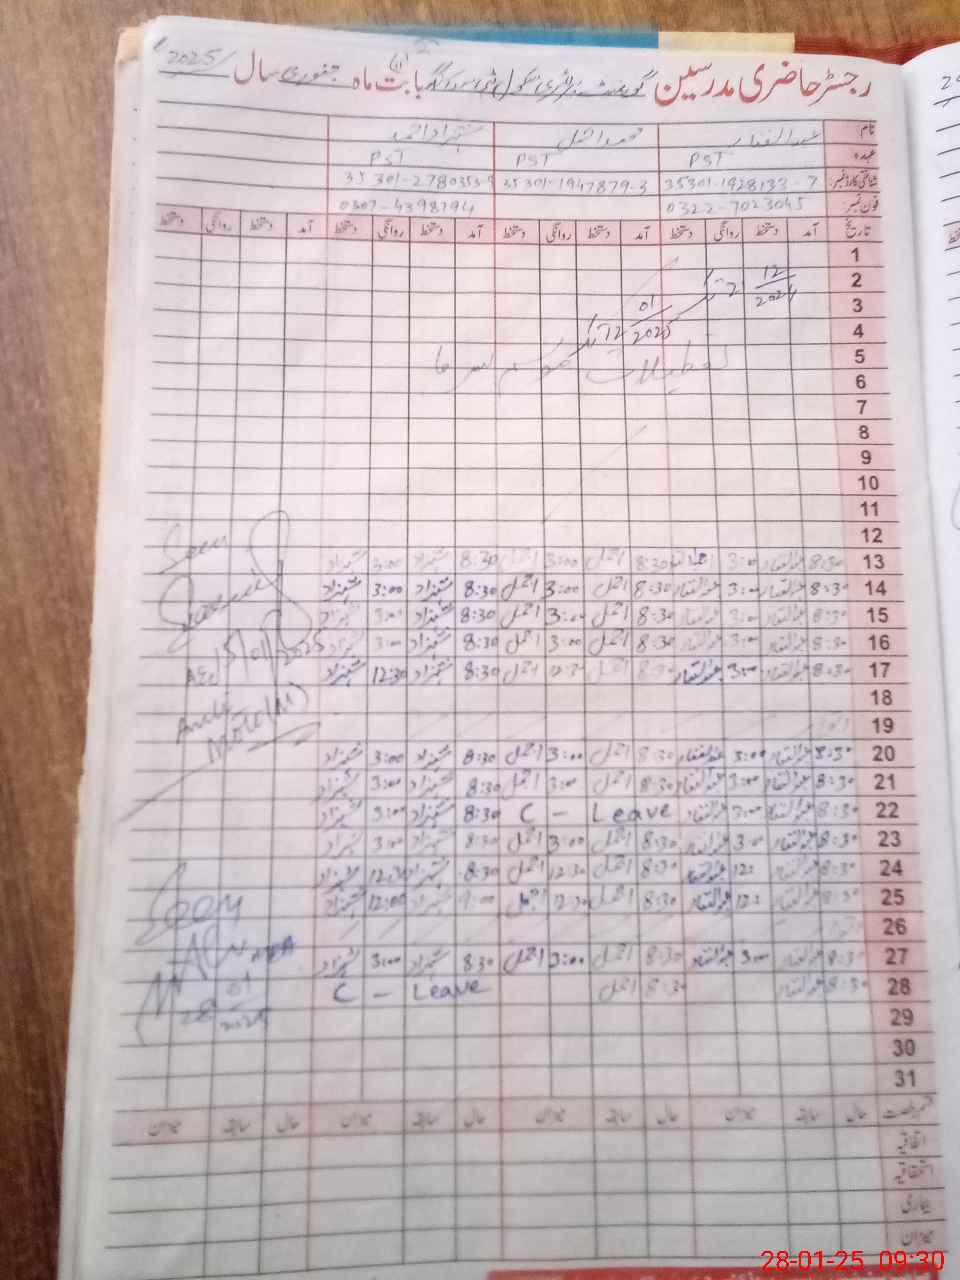 رجسٹر حاضری مدرسین گورنمنٹ پرائمری سکول بابت ماہ جنوری سال 2025
نام عبدالغفار محمد اجمل شہزاد احمد
عہدہ PST PST PST
شناختی کارڈ نمبر: 35301-1928133-7 35301-1947879-3 35301-2780353-9
فون نمبر: 0322-7023045 0307-4398194
تاریخ آمد دستخط روانگی دستخط آمد دستخط روانگی دستخط آمد دستخط روانگی دستخط آمد دستخط روانگی دستخط
1
2 12/2024
3 01
4 12 2025
5 تعطیلات موسم سرما
6
7
8
9
10
11
12
13 8:30 عبدالغفار 3:00 عبدالغفار 8:30 اجمل 3:00 اجمل 8:30 شہزاد 3:00 شہزاد
14 8:30 عبدالغفار 3:00 عبدالغفار 8:30 اجمل 3:00 اجمل 8:30 شہزاد 3:00 شہزاد
15 8:30 عبدالغفار 3:00 عبدالغفار 8:30 اجمل 3:00 اجمل 8:30 شہزاد 3:00 شہزاد
16 8:30 عبدالغفار 3:00 عبدالغفار 8:30 اجمل 3:00 اجمل 8:30 شہزاد 3:00 شہزاد
17 8:30 عبدالغفار 3:00 عبدالغفار 8:30 اجمل 12:30 اجمل 8:30 شہزاد 12:30 شہزاد
18
19 اتوار
20 8:30 عبدالغفار 3:00 عبدالغفار 8:30 اجمل 3:00 اجمل 8:30 شہزاد 3:00 شہزاد
21 8:30 عبدالغفار 3:00 عبدالغفار 8:30 اجمل 3:00 اجمل 8:30 شہزاد 3:00 شہزاد
22 8:30 عبدالغفار 3:00 عبدالغفار C - Leave 8:30 شہزاد 3:00 شہزاد
23 8:30 عبدالغفار 3:00 عبدالغفار 8:30 اجمل 3:00 اجمل 8:30 شہزاد 3:00 شہزاد
24 8:30 عبدالغفار 12: عبدالغفار 8:30 اجمل 12:30 اجمل 8:30 شہزاد 12:30 شہزاد
25 8:30 عبدالغفار 12: عبدالغفار 8:30 اجمل 12:30 اجمل 9:00 شہزاد 12:00 شہزاد
26 اتوار
27 8:30 عبدالغفار 3:00 عبدالغفار 8:30 اجمل 3:00 اجمل 8:30 شہزاد 3:00 شہزاد
28 8:30 عبدالغفار 8:30 اجمل C - Leave
29
30
31
Seen
15/01/2025
Seen
28 01/2025
حال سابقہ میزان حال سابقہ میزان حال سابقہ میزان
اتفاقیہ
استحقاقیہ
بیماری
میزان
28-01-25 09:30